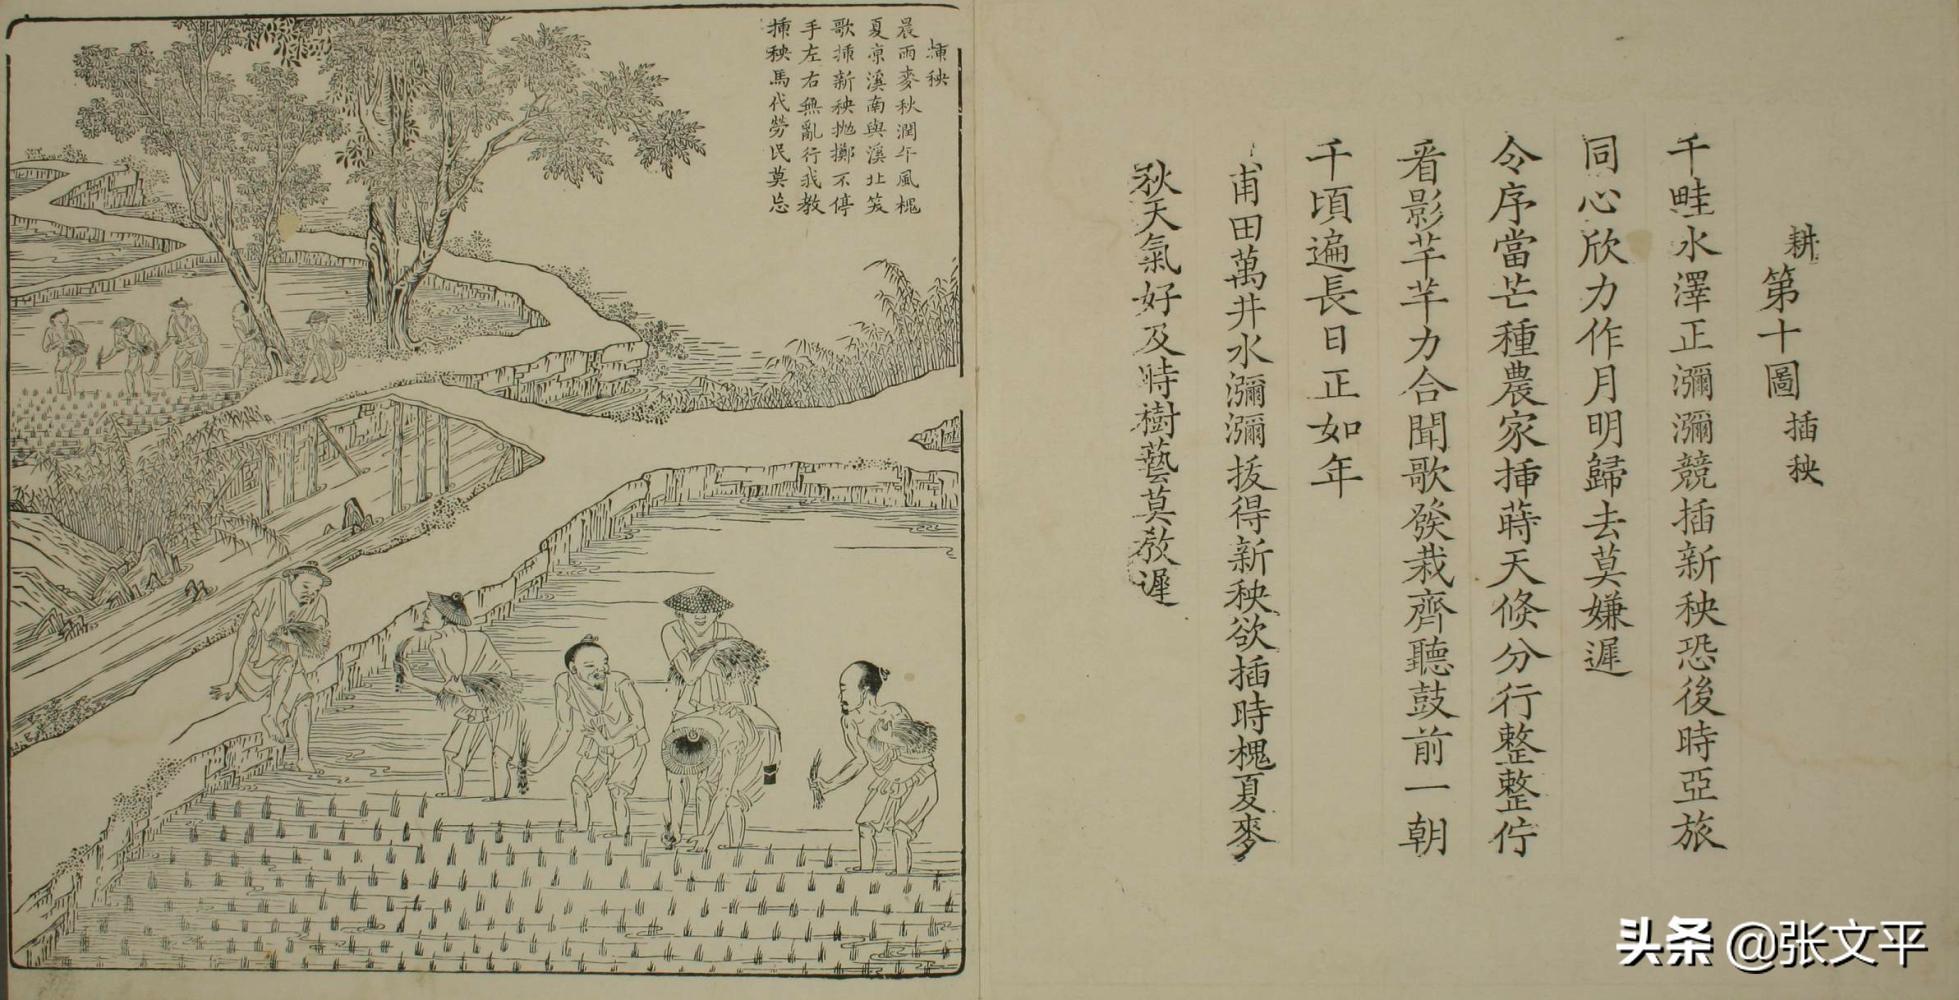 耕第十圖 插秧
千畦水澤正瀰瀰競插新秧恐後時亞旅
同心欣力作月明歸去莫嫌遲
令序當芒種農家揷蒔天倐分行整整佇
看影芊芊力合聞歌發栽齊聽鼓前一朝
千頃遍長日正如年
甫田萬井水瀰瀰拔得新秧欲插時槐夏麥
秋天氣好及時樹藝莫敎遲
揷秧
晨雨麥秋潤午風槐
夏凉溪南與溪北笑
歌揷新秧抛擲不停
手左右無亂行我教
揷秧馬代勞民莫忘
头条 @张文平